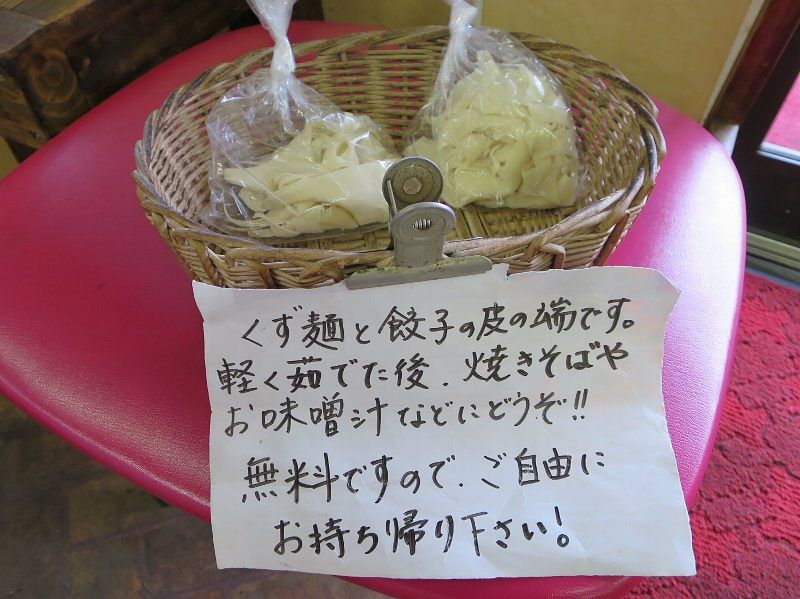 くず麺と餃子の皮の端です。
軽く茹でた後、焼きそばや
お味噌汁などにどうぞ!!
無料ですので、ご自由に
お持ち帰り下さい!